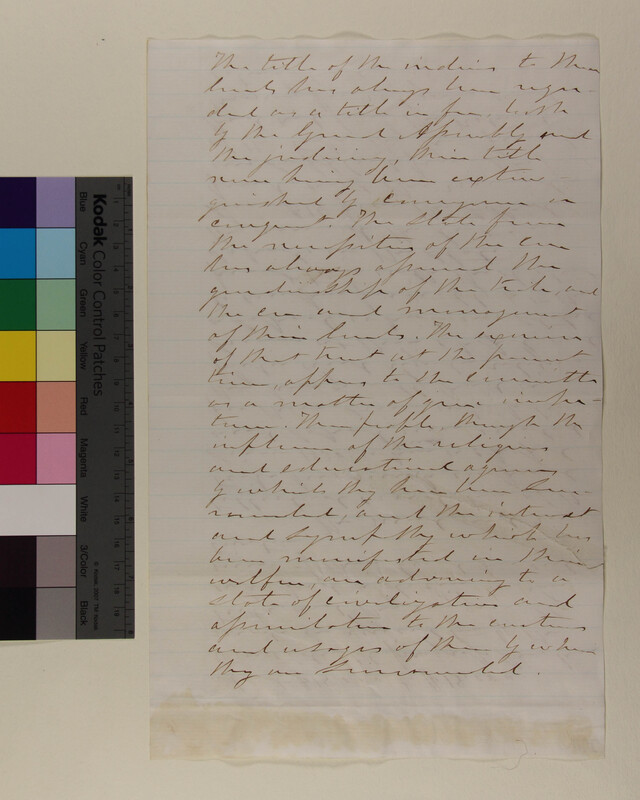 The title of the indians to their
lands has always been regar-
ded as a title in fee, both
by the General Assembly and
the judiciary, their title
never having been extin-
guished by conveyance or
conquest. The State from
the necessities of the case
has always assumed the
guardianship of the tribe, and
the care and management
of their lands. The exercise
of that trust at the present
time, appears to the committee
as a matter of grave impor-
tance. The people, through the
influence of the religious
and educational agencies
by which they have been sur-
rounded, and the interest
and sympathy which has
been manifested in their
welfare, are advancing to a
state of civilization and
assimilation to the customs
and usages of those by whom
they are surrounded.
Kodak Color Control Patches
Blue
Cyan
Green
Yellow
Red
Magenta
White
3/Color
Black